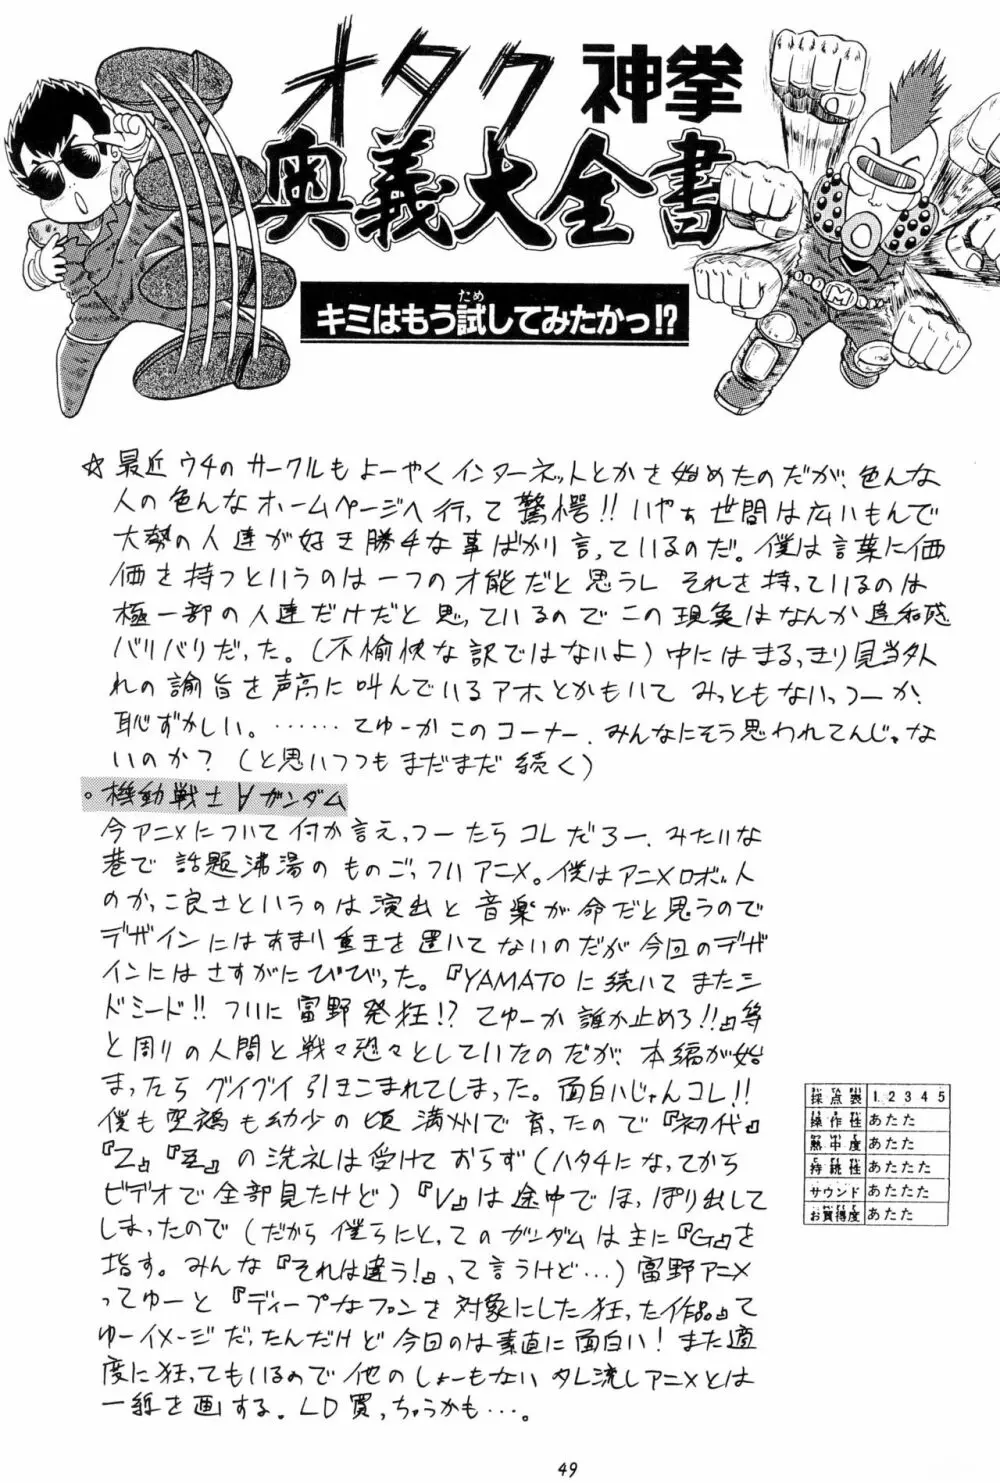 オタク神拳
奥義大全書
ため
キミはもう試してみたかっ!?
☆最近ウチのサークルもよーやくインターネットとかを始めたのだが、色んな
人の色んなホームページへ行って驚愕!!いやぁ世間は広いもんで
大勢の人達が好き勝手な事ばかり言っているのだ。僕は言葉に価
価を持つというのは一つの才能だと思うし それを持っているのは
極一部の人達だけだと思っているのでこの現象はなんか違和感
バリバリだった。(不愉快な訳ではないよ)中にはまるっきり見当外
れの諭旨を声高に叫んでいるアホとかもいて みっともないっつーか、
恥ずかしい。……てゆーかこのコーナー、みんなにそう思われてんじゃな
いのか?(と思いつつもまだまだ続く)
。機動戦士∀ガンダム
今アニメについて何か言えっつーたらコレだろー、みたいな
巷で話題沸湯のものごっついアニメ。僕はアニメロボット
のかっこ良さというのは演出と音楽が命だと思うので
デザインにはあまり重王を置いてないのだが今回のデザ
インにはさすがにびびった。『YAMATOに続いてまたシ
ドミード!!ついに富野発狂!?てゆーか誰か止めろ!!』等
と周りの人間と戦々恐々としていたのだが、本編が始
まったらグイグイ引きこまれてしまった。面白いじゃんコレ!!
僕も空鵺も幼少の頃満州で育ったので『初代』
『Z』『ZZ』の洗礼は受けておらず(ハタチになってから
ビデオで全部見たけど)『V』は途中でほっぽり出して
しまったので(だから僕らにとってのガンダムは主に『G』を
指す。みんな『それは違う!』って言うけど…)富野アニメ
ってゆーと『ディープなファンを対象にした狂った作品』て
ゆーイメージだったんだけど今回のは素直に面白い!また適
度に狂ってもいるので他のしょーもないタレ流しアニメとは
一線を画する。LD買っちゃうかも…。
採点表 1 2 3 4 5
操作性 あたた
熱中度 あたた
持続性 あたたた
サウンド あたたた
お買得度 あたた
49